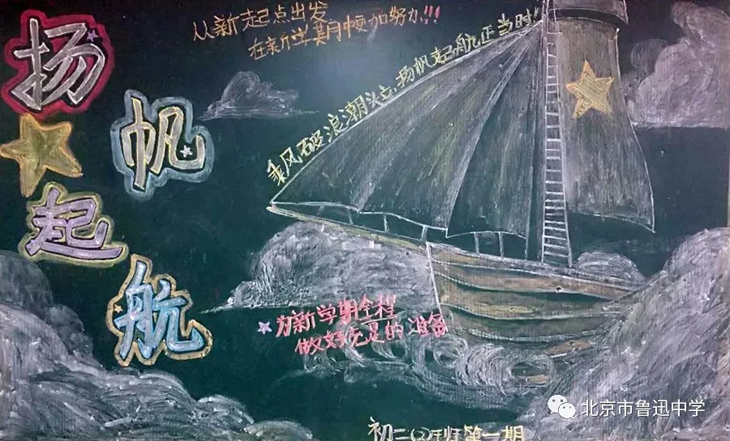 扬帆起航
从新起点出发
在新学期中更加努力!!!
乘风破浪潮头立,扬帆起航正当时!
为新学期全程
做好充足的准备
初二(2)班第一期
北京市鲁迅中学